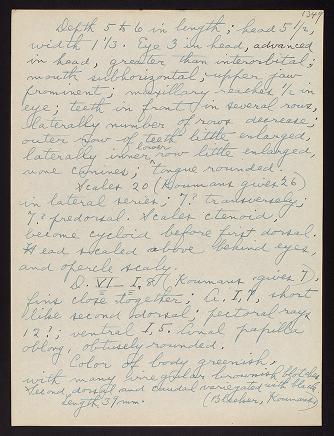 1349
Depth 5 to 6 in length; head 5 1/2,
width 1 1/3. Eye 3 in head, advanced
in head, greater than interorbital;
mouth subhorizontal; upper jaw
prominent; maxillary reaches 1/2 in
eye; teeth in front in several rows,
laterally number of rows decrease;
outer row of teeth little enlarged,
laterally inner lower row little enlarged,
none canines; tongue rounded.
Scales 20 (Koumans gives 26)
in lateral series, 7? transversely;
7? predorsal. Scales ctenoid,
become cycloid before first dorsal.
Head scaled above behind eyes,
and opercle scaly.
D. VI – I, 8 (Koumans gives 7),
fins close together; A. I, 7, short
like second dorsal; pectoral rays
12?; ventral I, 5. Anal papilla
oblong, obtusely rounded.
Color of body greenish,
with many irregular brownish blotches
Second dorsal and caudal variegated with black.
Length 39 mm. (Bleeker, Koumans)